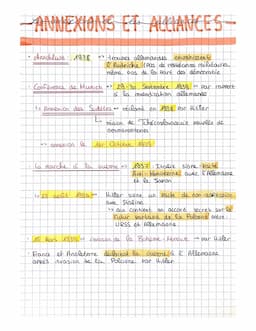 ANNEXIONS ET ALLIANCES
Anschluss : 1938 → troupes allemandes envahissent
l'Autriche (Pas de résistance militaire,
même pas de la part des démocratie
Conférence de Munich → 29-30 Septembre 1938 → par rapport
à la mobilisation allemande
↳ Annexion des Sudètes → réclamé en 1938 par Hitler
↳ région de Tchécoslovaquie peuplée de
germanophones
→ annexion le 1er Octobre 1938
La marche à la guerre → 1937 Italie signe
Anti-Kominterm avec l'Allemagne
et le Japon
↳ 23 août 1939 → Hitler signe un pacte de non-agression
avec Staline
↳ qui contient un accord secret sur le
futur partage de la Pologne entre
URSS et Allemagne
15 Mars 1939 → invasion de la Bohème-Moravie → par Hitler
France et Angleterre déclarent la guerre à l'Allemagne
APRÈS invasion de la Pologne par Hitler